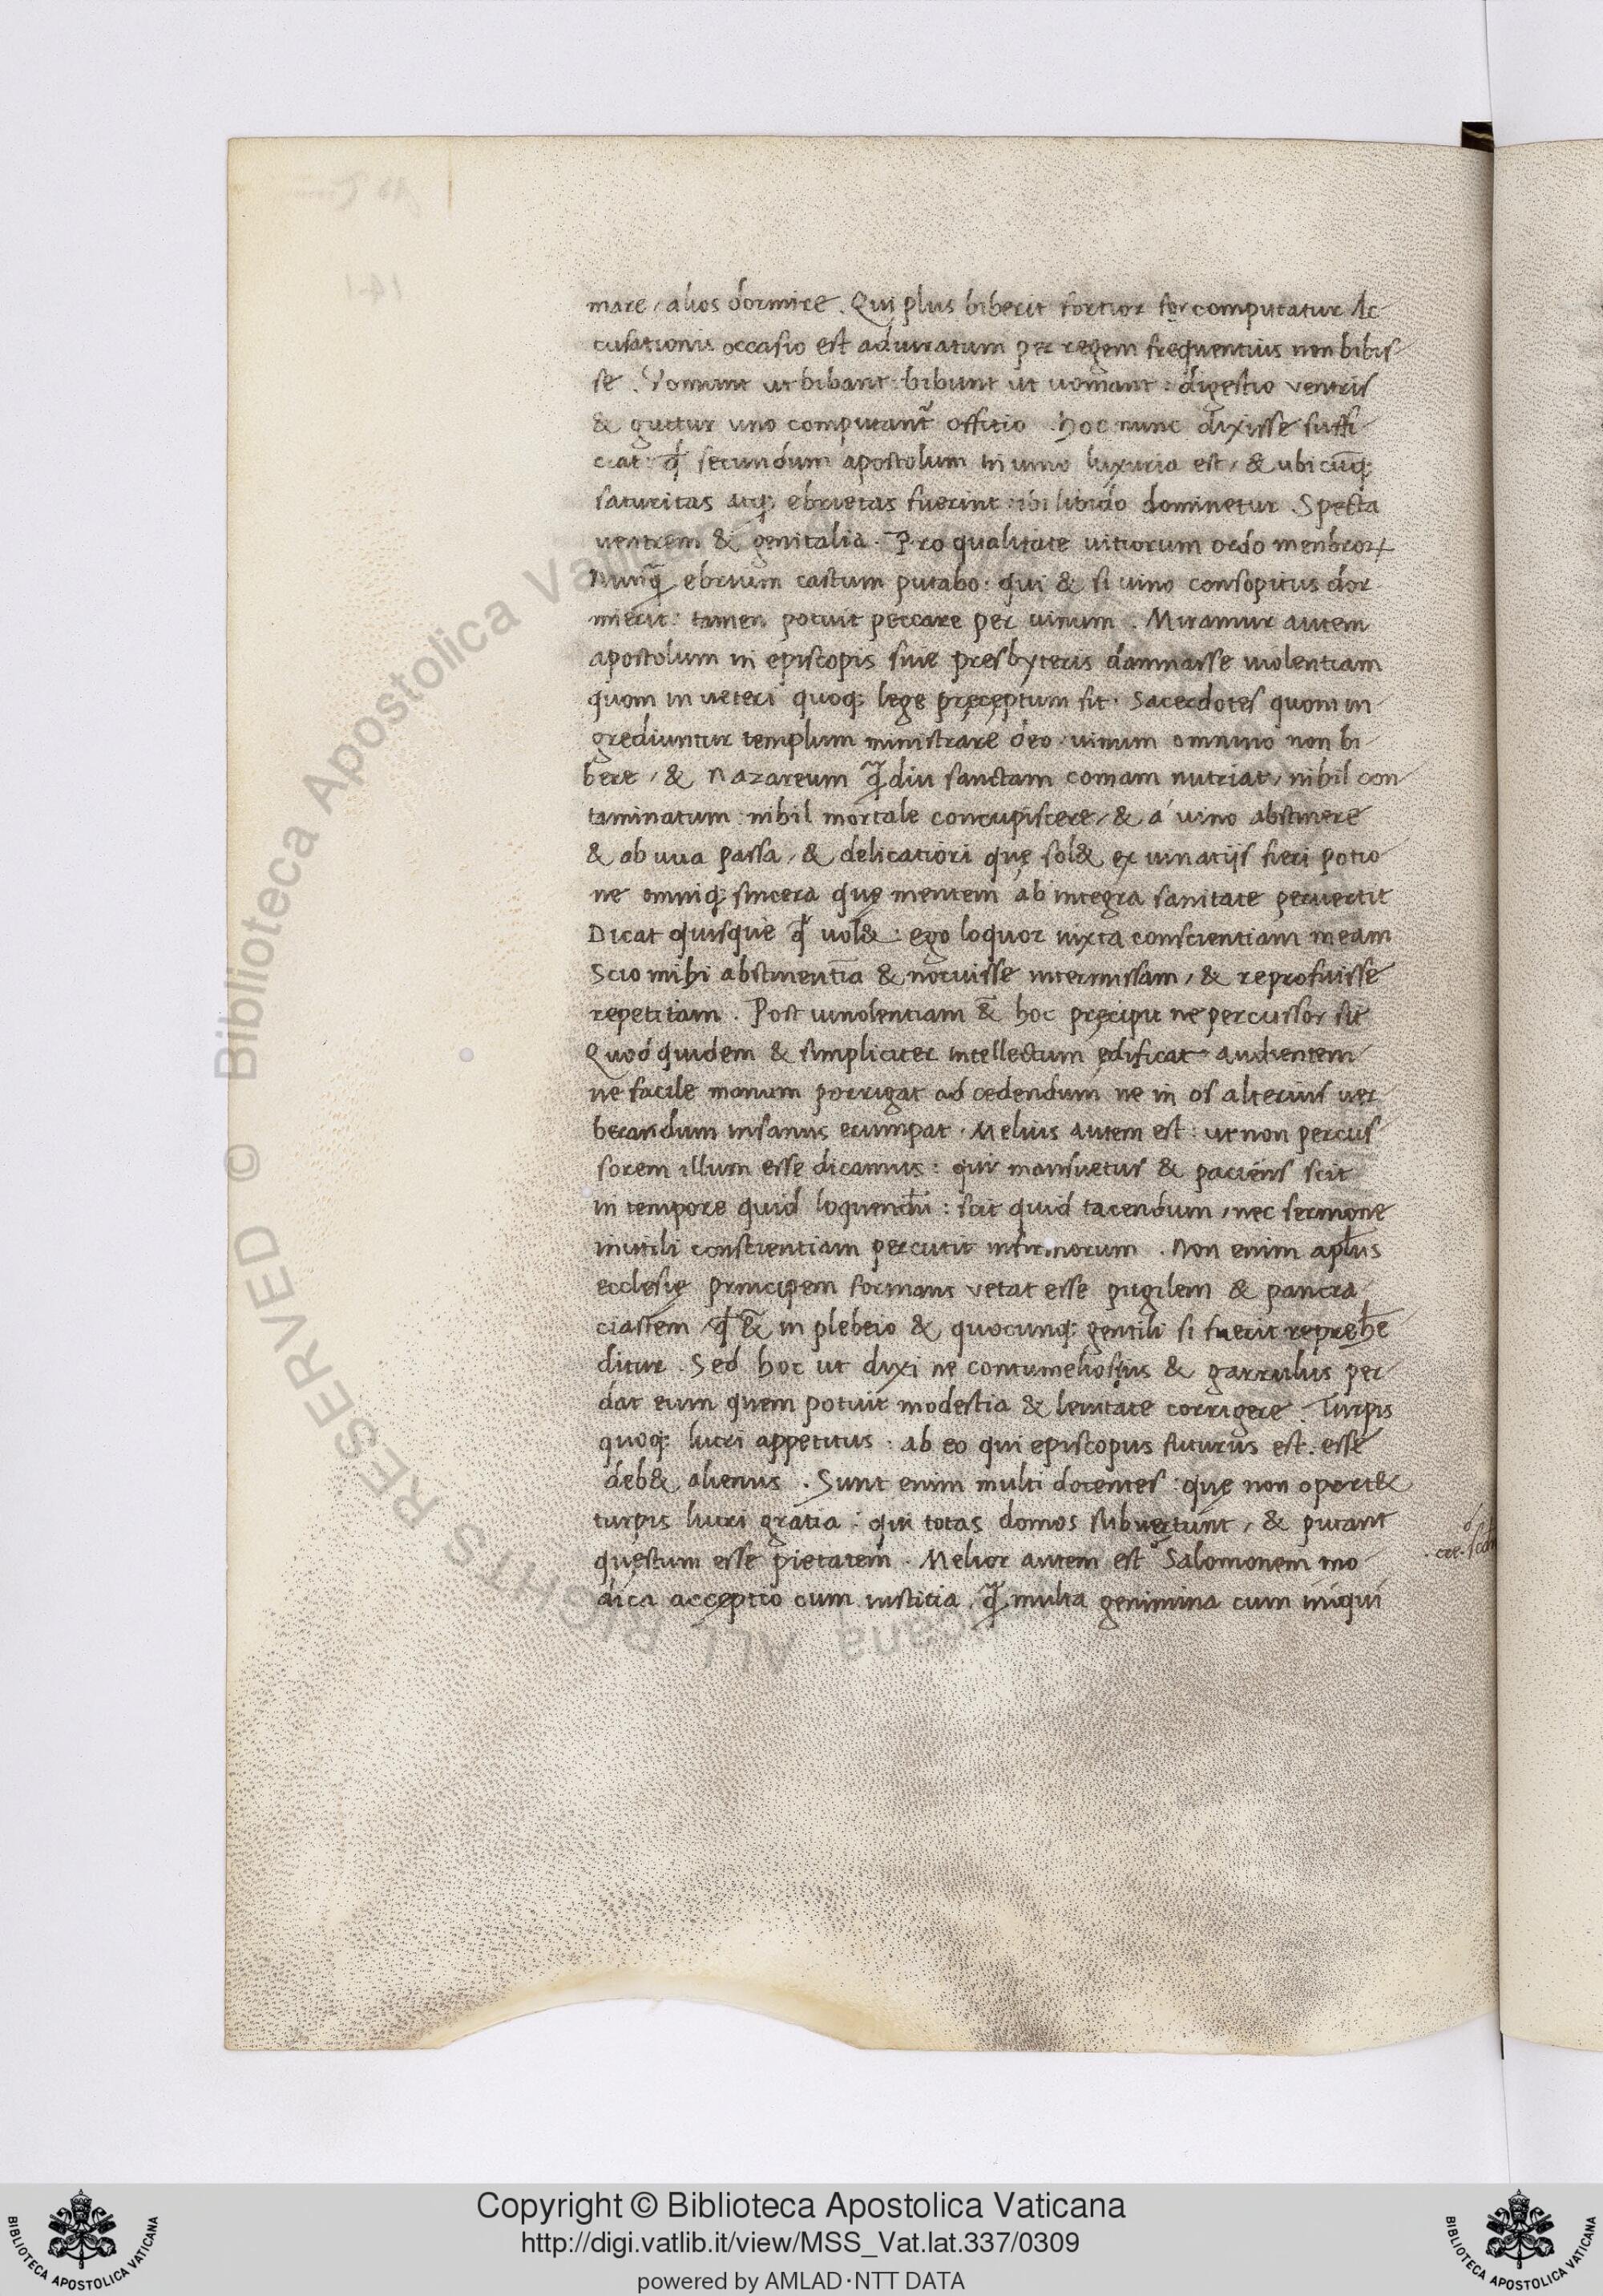 mare, alios dormire. Qui plus biberit fortior computatur Ac
cusationis occasio est adiuratum per regem frequentius non bibis
se. Vomunt ut bibant: bibunt ut uomant: digestio ventris
& guttur uno computant̃ offitio. hoc nunc dixisse suffi
ciat: q̃d secundum apostolum in uino luxuria est, & ubicũq;
saturitas atq; ebrietas fuerint: ibi libido dominetur. Specta
uentrem & genitalia. Pro qualitate uitiorum ordo menbroꝝ
Nunq̃ ebrium castum putabo. qui & si uino consopitus dor
mierit: tamen potuit peccare per uinum. Miramur autem
apostolum in episcopis siue presbyteris damnasse uiolentiam
quom in ueteri quoq; lege pręceptum sit. Sacerdotes quom in
grediuntur templum ministrare deo. uinum omnino non bi
bere, & nazareum q̃diu sanctam comam nutriat, nihil con
taminatum: nihil mortale concupiscere, & á uino abstinere
& ab uua passa, & delicatiori quę sol& ex uinatijs fieri potio
ne omniq; sincera quę mentem ab integra sanitate peruertit
Dicat quisque q̃d uol&: ego loquor iuxta conscientiam meam
Scio mihi abstinentĩa & nocuisse intermissam, & reprofuisse
repetitam. Post uinolentiam &̃ hoc pręcipit ne percussor sit
Quod quidem & simpliciter intellectum ędificat audientem
ne facile manum porrigat ad cedendum ne in os alterius uer
berandum insanus erumpat. Melius autem est: ut non percus
sorem illum esse dicamus: qui mansuetus & paciens scit
in tempore quid loquendũ: scit quid tacendum, nec sermone
inutili conscientiam percutit infirmorum. Non enim ap̃lus
ecclesię principem formans vetat esse pugilem & pancra
ciastem q̃d &̃ in plebeio & quocunq; gentili si fuerit reprehẽ
ditur. Sed hoc ut dixi ne contumeliosius & garrulus per
dat eum quem potuit modestia & lenitate corrigere. Turpis
quoq; lucri appetitus: ab eo qui episcopus futurus est. esse
deb& alienus. Sunt enim multi docentes: quę non oport&
turpis lucri gratia: qui totas domos subuertunt, & putant
quęstum esse pietatem. Melior autem est Salomonem mo
dica acceptio cum iustitia, q̃ multa genimina cum iniqui
Copyright © Biblioteca Apostolica Vaticana
http://digi.vatlib.it/view/MSS_Vat.lat.337/0309
powered by AMLAD·NTT DATA